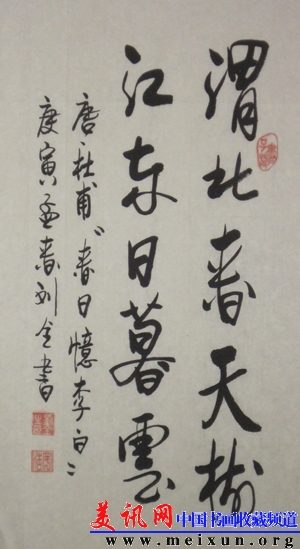 渭北春天树
江东日暮雲
唐杜甫"春日憶李白"
庚寅孟春刘書
美讯网 中国书画收藏频道
www.meixun.org